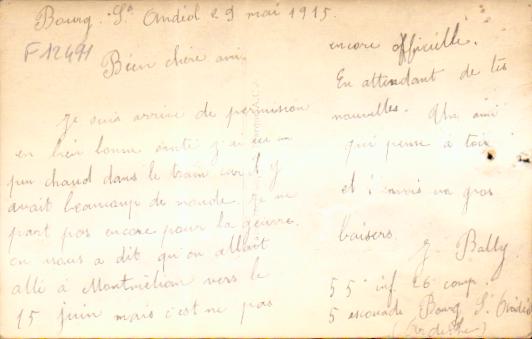 Bourg-St Andéol 29 mai 1915.
F12491
Bien chère ami.
Je suis arrivé de permission
en bien bonne santé j'ai eu un
peu chaud dans le train car il y
avait beaucoup de monde. Je ne
part pas encore pour la geurre.
on nous a dit qu'on allait
allé à Montmélian vers le
15 juin mais c'est ne pas
encore officielle.
En attendant de tes
nouvelles. Un ami
qui pense à toi
et t'envois un gros
baisers.
J. Bally
55e inf. 26 comp.
5 escouade Bourg St Andéol
(Ardèche)